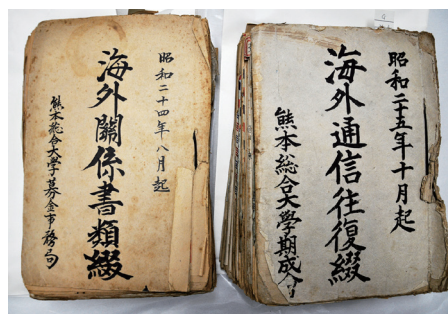 昭和二十四年八月起
海外關係書類綴
熊本総合大学募金事務局
昭和二十五年十月起
海外通信往復綴
熊本総合大學期成会